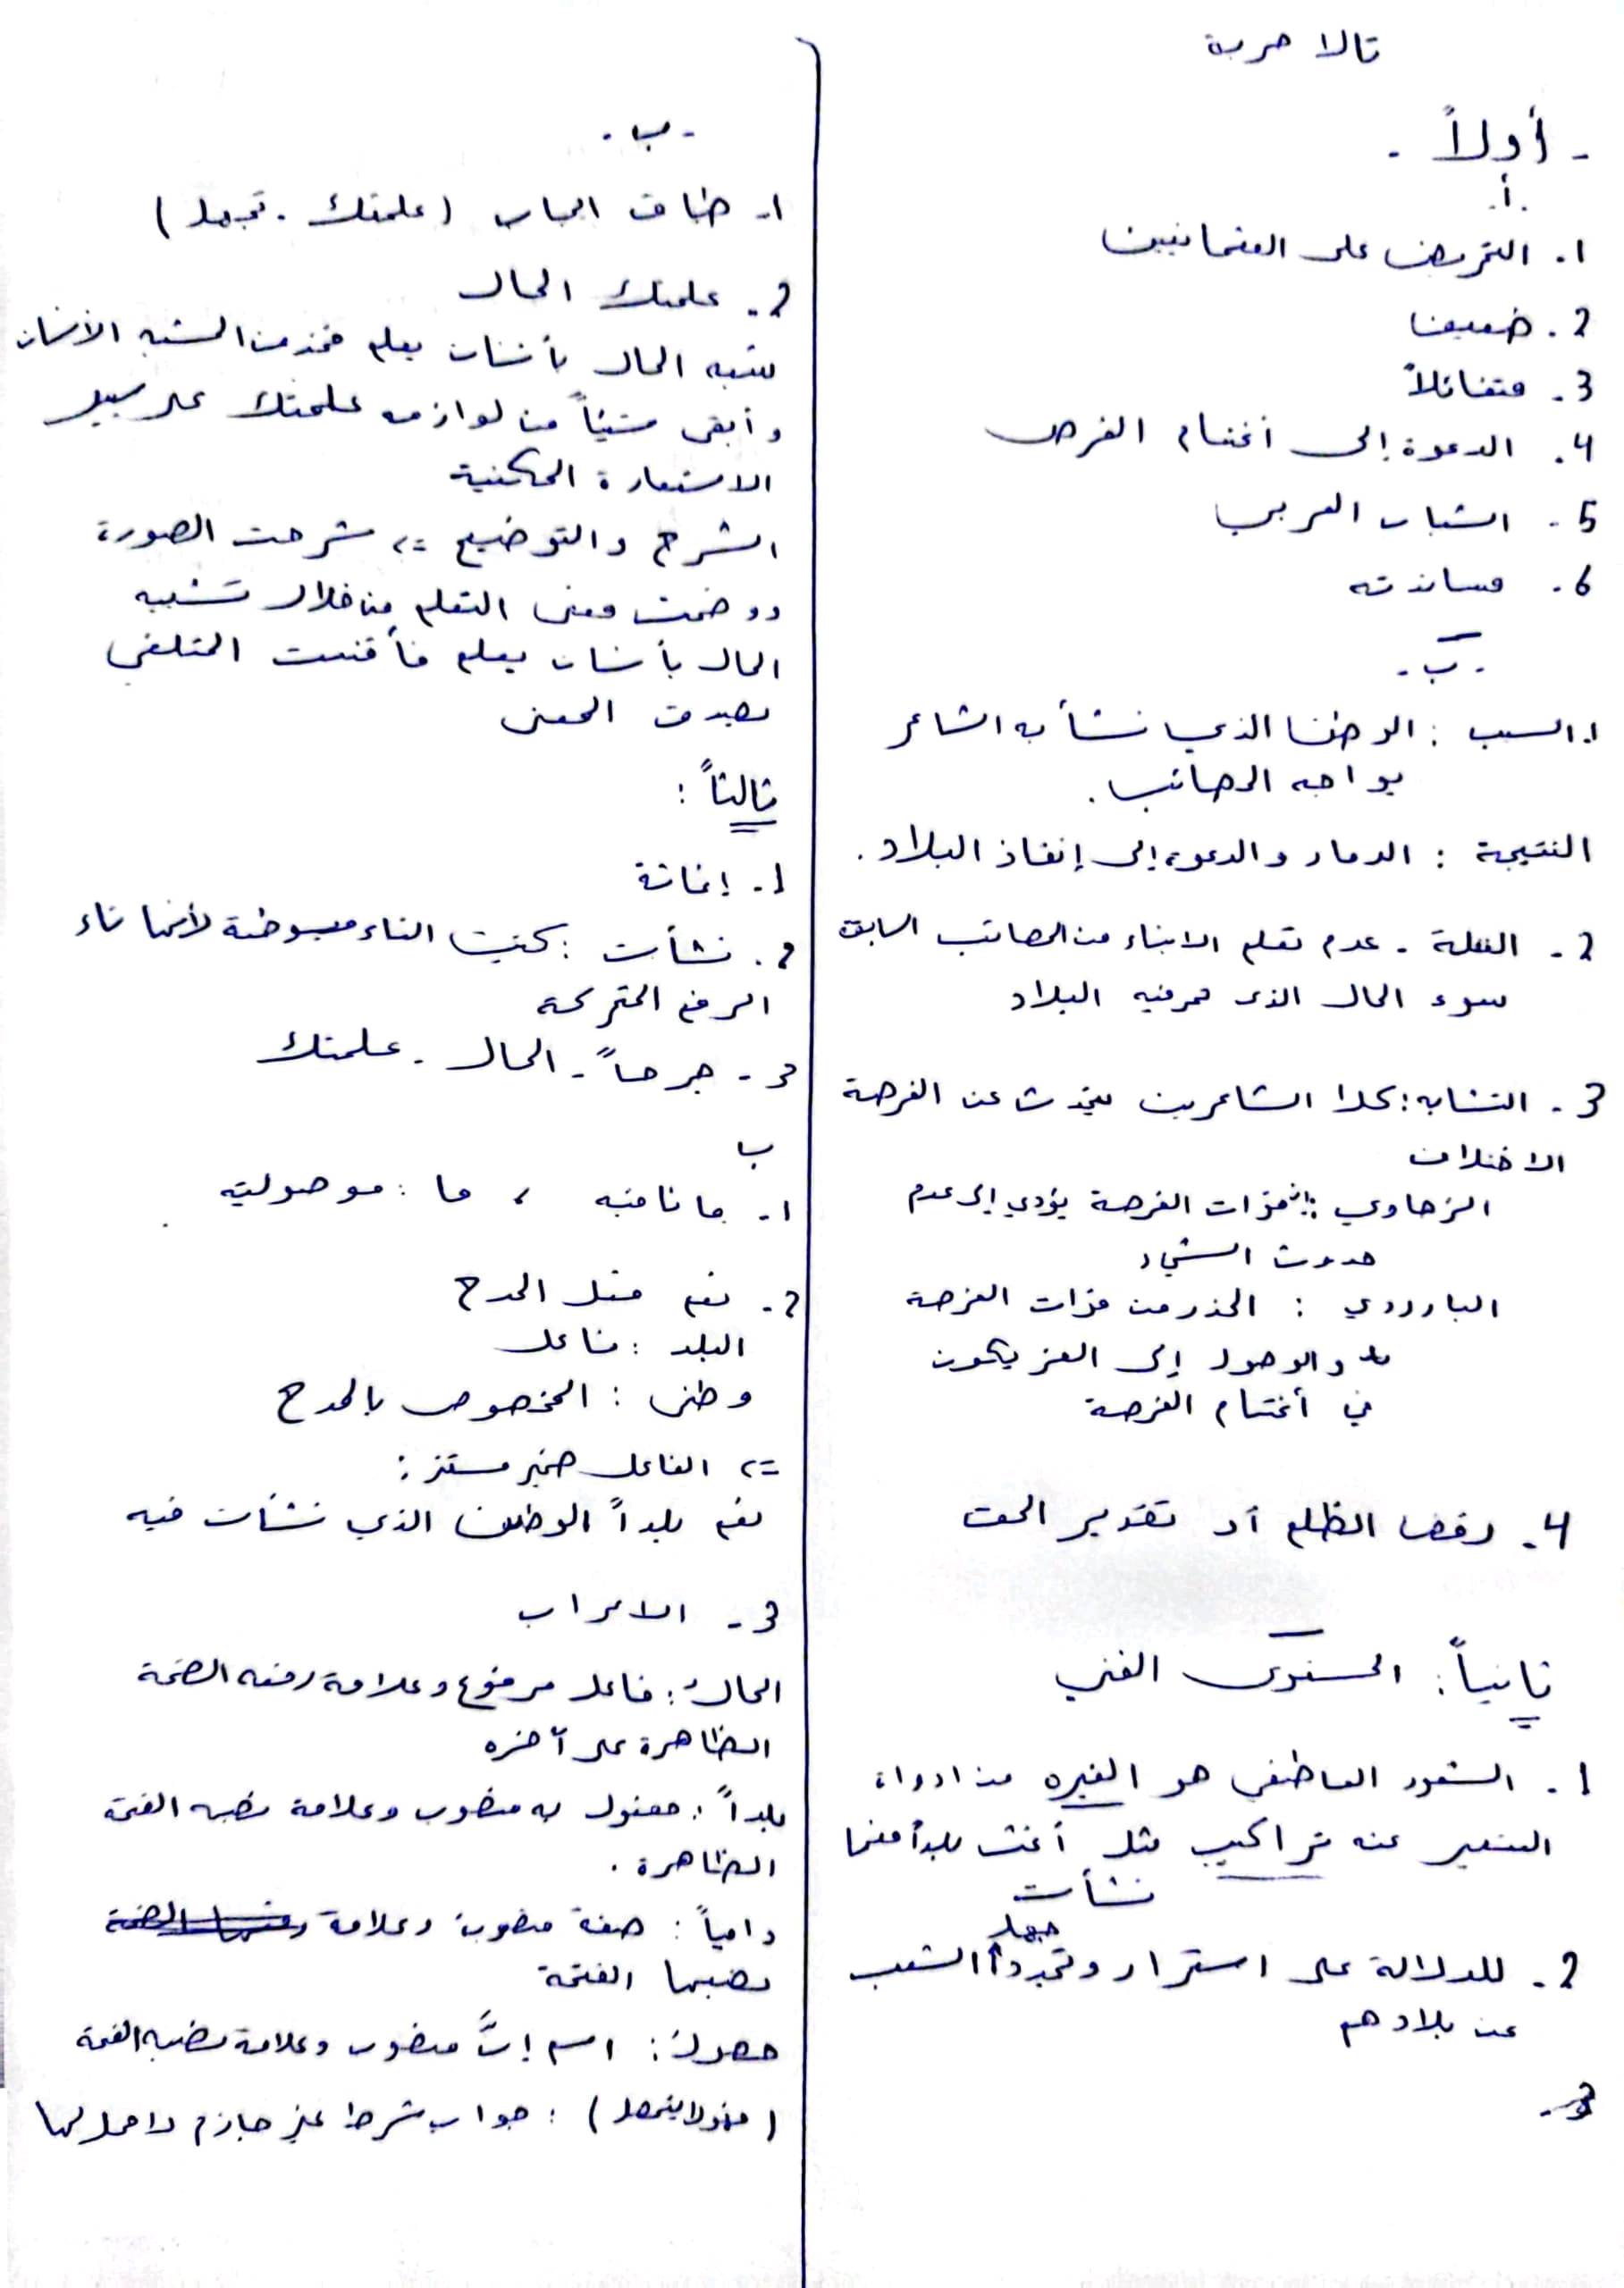 تالا حربة
- أولاً -
.أ.
1. التحريض على العثمانيين
2. ضعيفنا
3. متفائلاً
4. الدعوة إلى أغتنام الفرص
5. الشباب العربي
6. مساندته
- ب -
1. السبب : الوطن الذي نشأ به الشاعر
يواجه المصائب .
النتيجة : الدمار والدعوة إلى إنقاذ البلاد .
2 - الغفلة - عدم تعلم الابناء من المصائب السابقة
سوء الحال الذي تمر فيه البلاد
3 - التشابه : كلا الشاعرين يتحدث عن الفرصة
الاختلاف
الزهاوي : فوات الفرصة يؤدي إلى عدم
حدوث الشيء
البارودي : الحذر من فوات الفرصة
والوصول إلى العز يكون
في أغتنام الفرصة
4. رفض الظلم أو تقدير الحق
ثانياً : المستوى الفني
1. الشعور العاطفي هو الغيره من ادواة
التعبير عنه تراكيب مثل أغث بلداً منها
نشأت
2. للدلالة على استمرار وتجدد جهل الشعب
عن بلادهم
3.
- ب .
1- طباق ايجاب (علمتك - تجهل)
2- علمتك الحال
شبه الحال بأنسان يعلم فحذف المشبه الأنسان
وأبقى شيئاً من لوازمه علمتك على سبيل
الاستعارة المكنية
الشرح والتوضيح => شرحت الصورة
ووضحت معنى التعلم من خلال تشبيه
الحال بأنسان يعلم فأقنعت المتلقي
بصدق المعنى
ثالثاً :
1- إغاثة
2. نشأت : كتبت التاء مبسوطة لأنها تاء
الرفع المتحركة
3 - جرحاً - الحال - علمتك
ب
1- ما نافيه ، ما : موصولية
2- نعم فعل المدح
البلد : فاعل
وطني : المخصوص بالمدح
=> الفاعل ضمير مستتر :
نعم بلداً الوطن الذي نشأت فيه
3 - الاعراب
الحالُ : فاعل مرفوع وعلامة رفعه الضمة
الظاهرة على آخره
بلداً : مفعول به منصوب وعلامة نصبه الفتحة
الظاهرة .
دامياً : صفة منصوبة وعلامة رفعها الضمة
نصبها الفتحة
حصول : اسم إنَّ منصوب وعلامة نصبه الفتحة
(فهو لا يحصل) : جواب شرط غير جازم لا محل لها